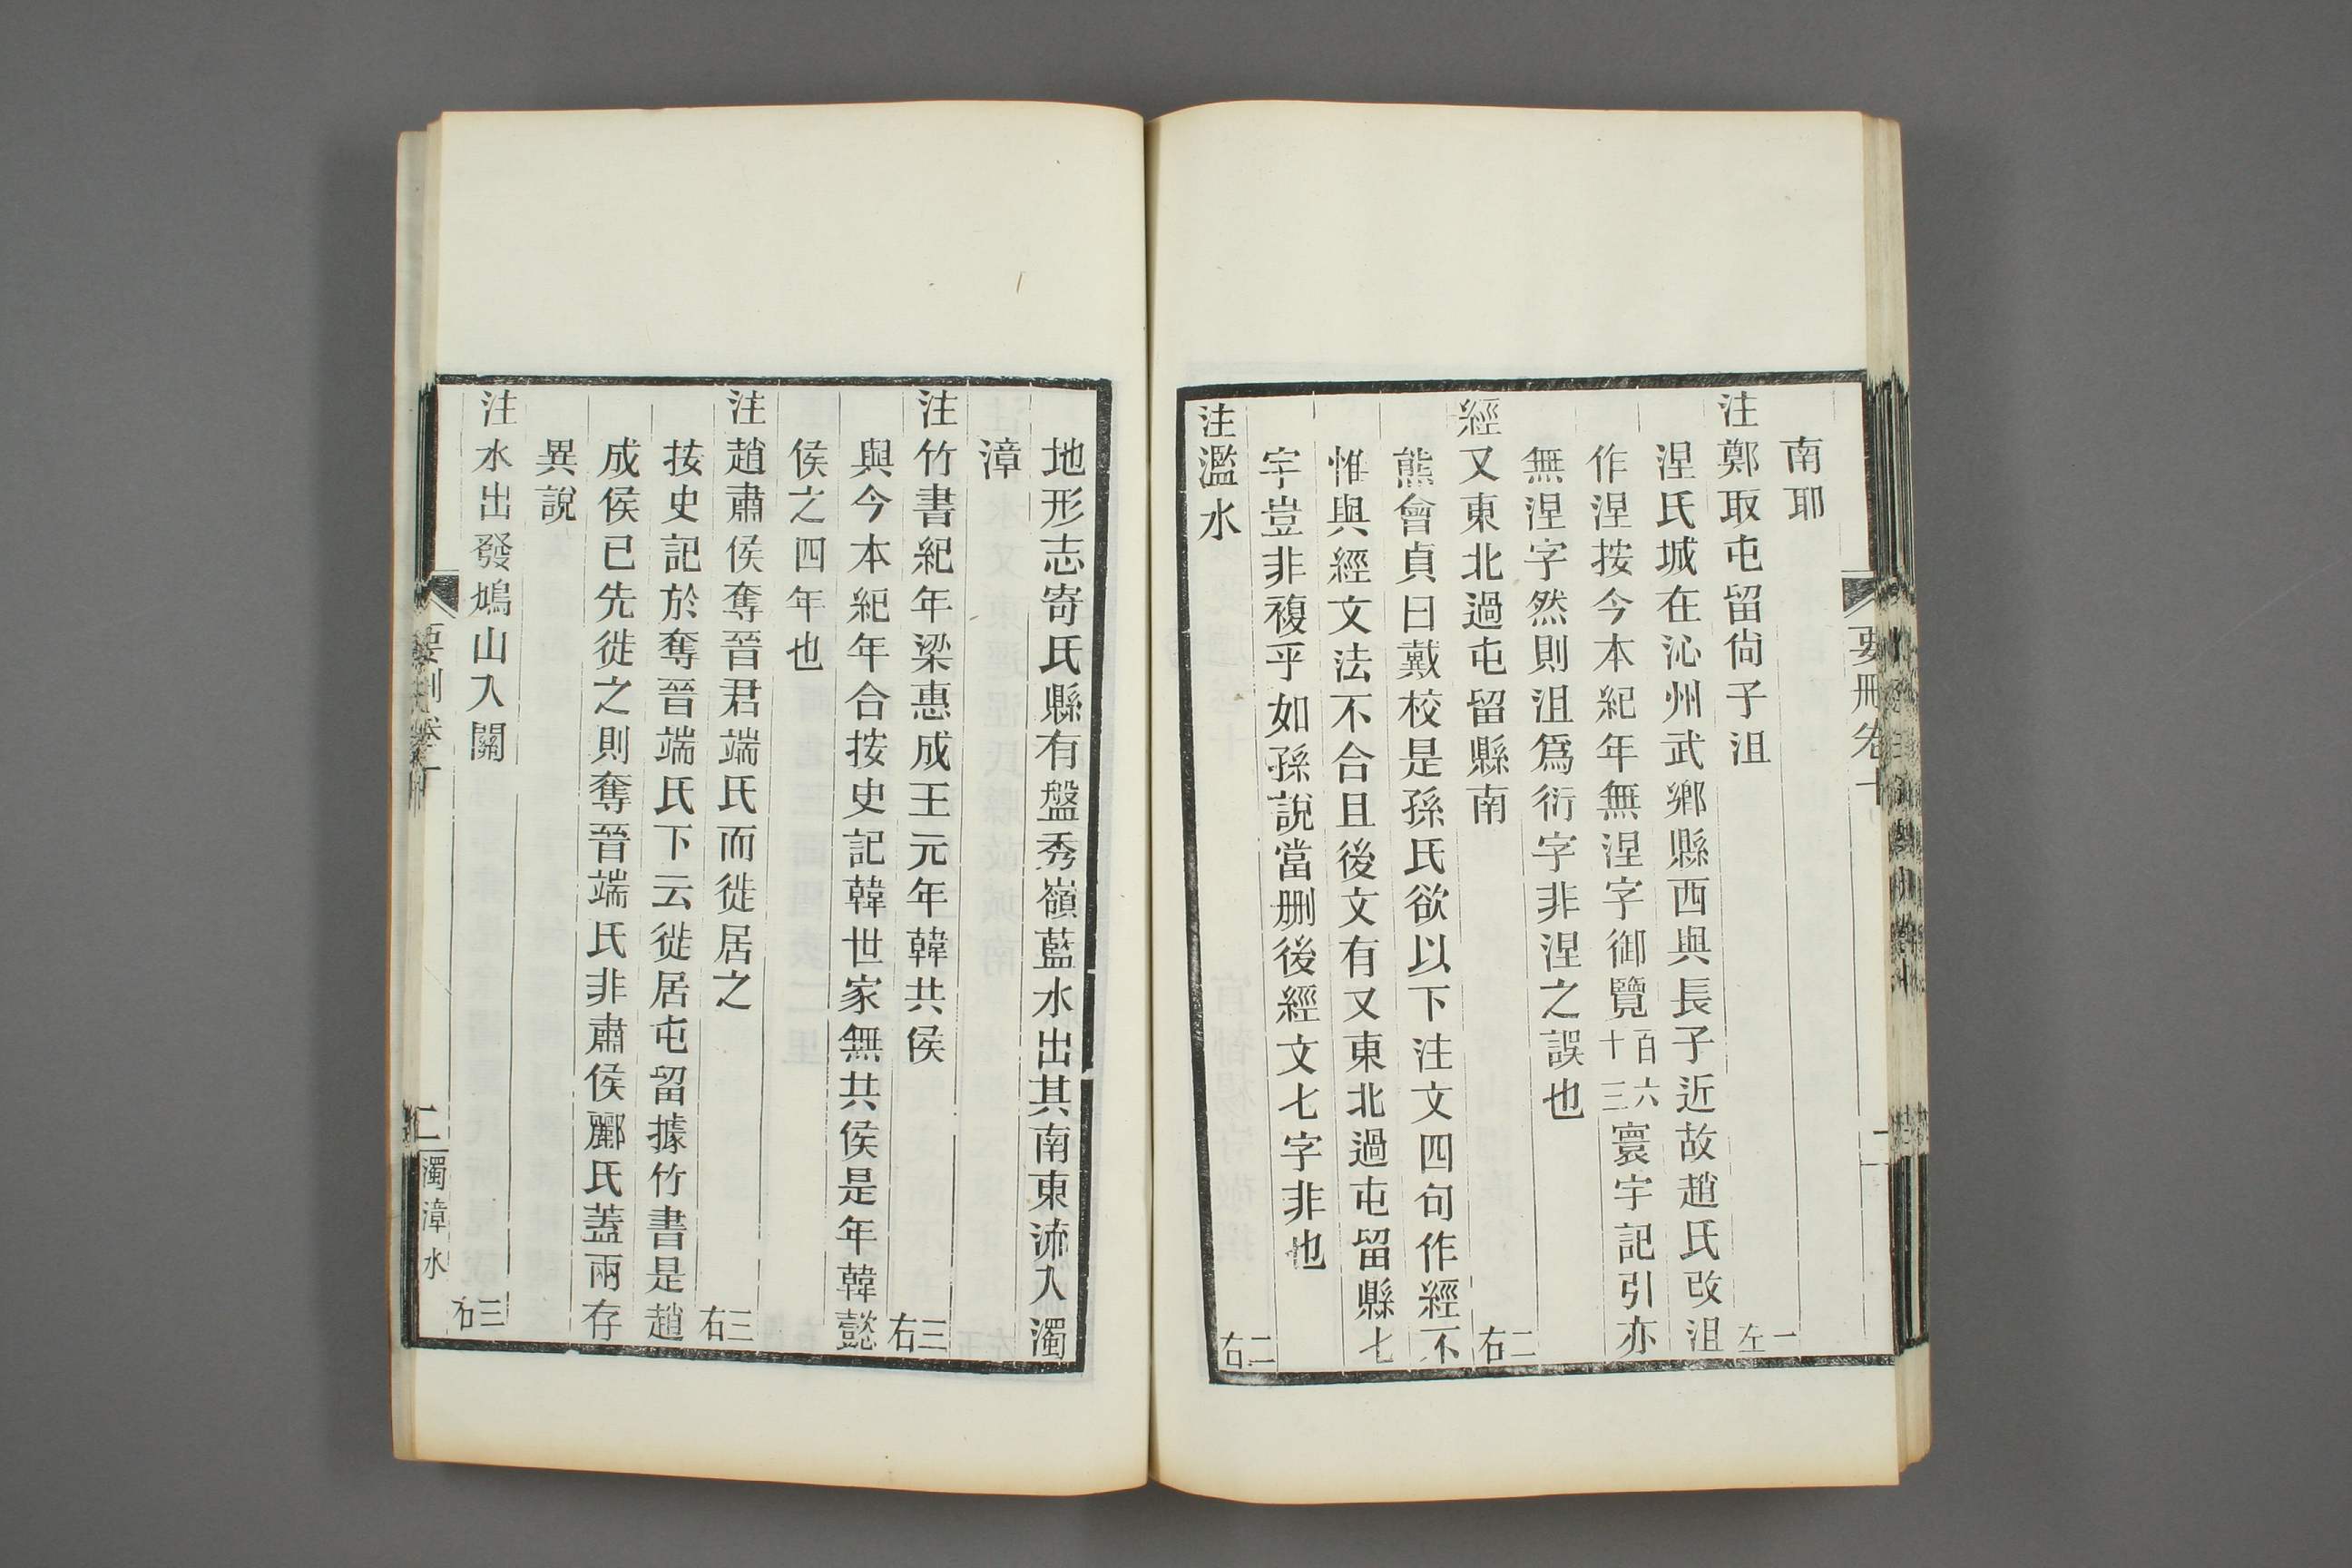 南耶
注鄭取屯留尙子沮 一左
涅氏城在沁州武鄉縣西與長子近故趙氏改沮
作涅按今本紀年無涅字御覽百六十三寰宇記引亦
無涅字然則沮爲衍字非涅之誤也
經又東北過屯留縣南 二右
熊會貞曰戴校是孫氏欲以下注文四句作經不
惟與經文法不合且後文有又東北過屯留縣七
字豈非複乎如孫說當刪後經文七字非也
注濫水 二右
地形志寄氏縣有盤秀嶺藍水出其南東流入濁
漳
注竹書紀年梁惠成王元年韓共侯 三右
與今本紀年合按史記韓世家無共侯是年韓懿
侯之四年也
注趙肅侯奪晉君端氏而徙居之 三右
按史記於奪晉端氏下云徙居屯留據竹書是趙
成侯已先徙之則奪晉端氏非肅侯酈氏蓋兩存
異說
注水出發鳩山入關 三右
要刪卷十
二 濁漳水